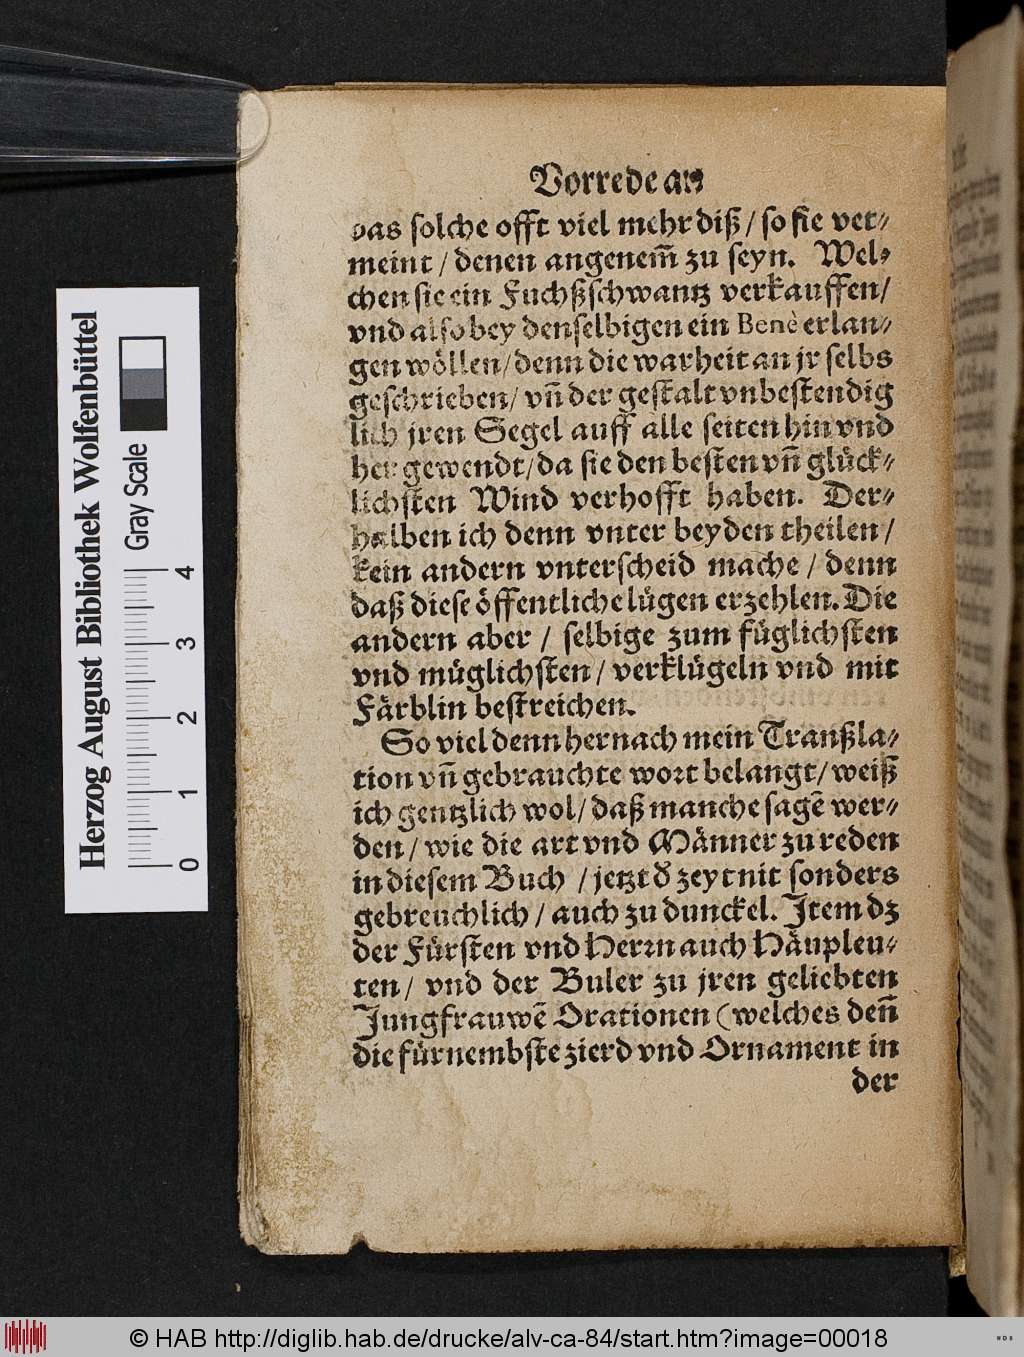 Vorrede an
das solche offt viel mehr diß / so sie ver⸗
meint / denen angenem̃ zu seyn. Wel⸗
chen sie ein Fuchßschwantz verkauffen /
vnd also bey denselbigen ein Benè erlan⸗
gen wöllen / denn die warheit an jr selbs
geschrieben / vñ der gestalt vnbestendig
lich jren Segel auff alle seiten hin vnd
her gewendt / da sie den besten vñ glück⸗
lichsten Wind verhofft haben. Der⸗
halben ich denn vnter beyden theilen /
kein andern vnterscheid mache / denn
daß diese öffentliche lügen erzehlen. Die
andern aber / selbige zum füglichsten
vnd müglichsten / verklügeln vnd mit
Färblin bestreichen.
So viel denn hernach mein Tranßla⸗
tion vñ gebrauchte wort belangt / weiß
ich gentzlich wol / daß manche sagẽ wer⸗
den / wie die art vnd Männer zu reden
in diesem Buch / jetzt đ zeyt nit sonders
gebreuchlich / auch zu dunckel. Item dz
der Fürsten vnd Herrn auch Häupleu⸗
ten / vnd der Buler zu jren geliebten
Jungfrauwẽ Orationen (welches deñ
die fürnembste zierd vnd Ornament in
der
Herzog August Bibliothek Wolfenbüttel
Gray Scale
0 1 2 3 4
© HAB http://diglib.hab.de/drucke/alv-ca-84/start.htm?image=00018